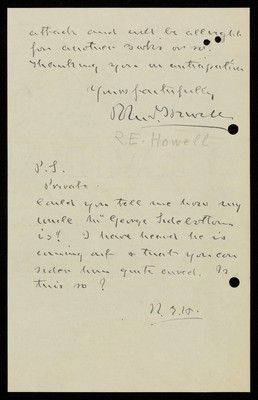 attack and will be allright
for another 20 yrs or so.
Thanking you in anticipation
Yours faithfully
R.E. Howell
P.S.
Private
Could you tell me how my
uncle Mr George Sidebottom
is? I have heard he is
coming out & that you con
sider him quite cured. Is
this so?